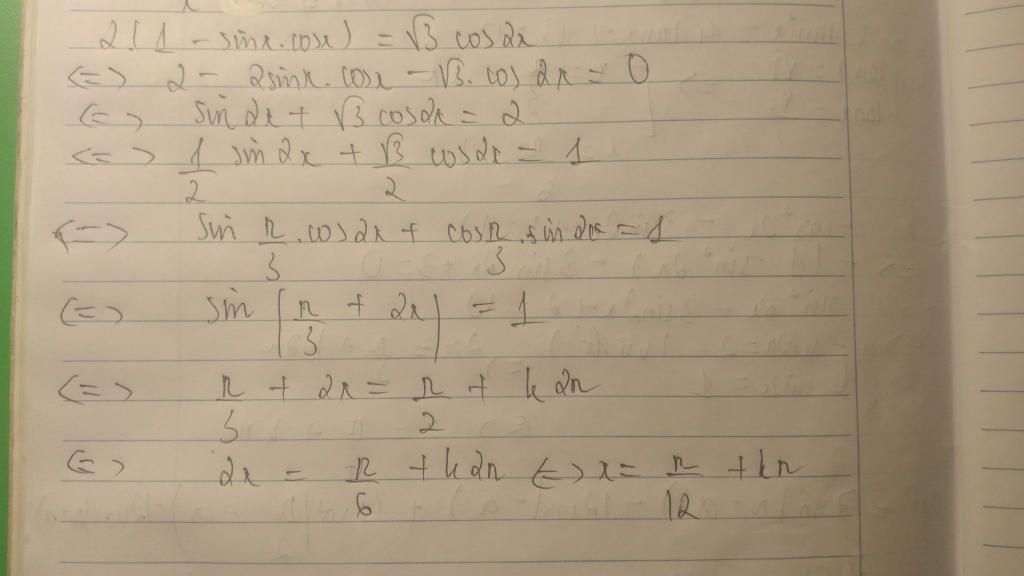 2(1 - sinx.cosx) = √3 cos2x
<=> 2 - 2sinx.cosx - √3.cos2x = 0
<=> sin2x + √3 cos2x = 2
<=> 1/2 sin2x + √3/2 cos2x = 1
<=> sin π/3 .cos2x + cos π/3 .sin2x = 1
<=> sin (π/3 + 2x) = 1
<=> π/3 + 2x = π/2 + k2π
<=> 2x = π/6 + k2π <=> x = π/12 + kπ